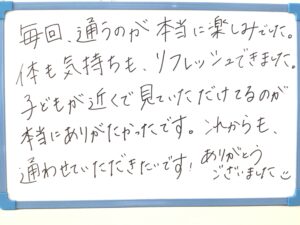 毎回、通うのが本当に楽しみでした。
体も気持ちも、リフレッシュできました。
子どもが近くで見ていただけてるのが
本当にありがたかったです。これからも、
通わせていただきたいです！ありがとう
ございました